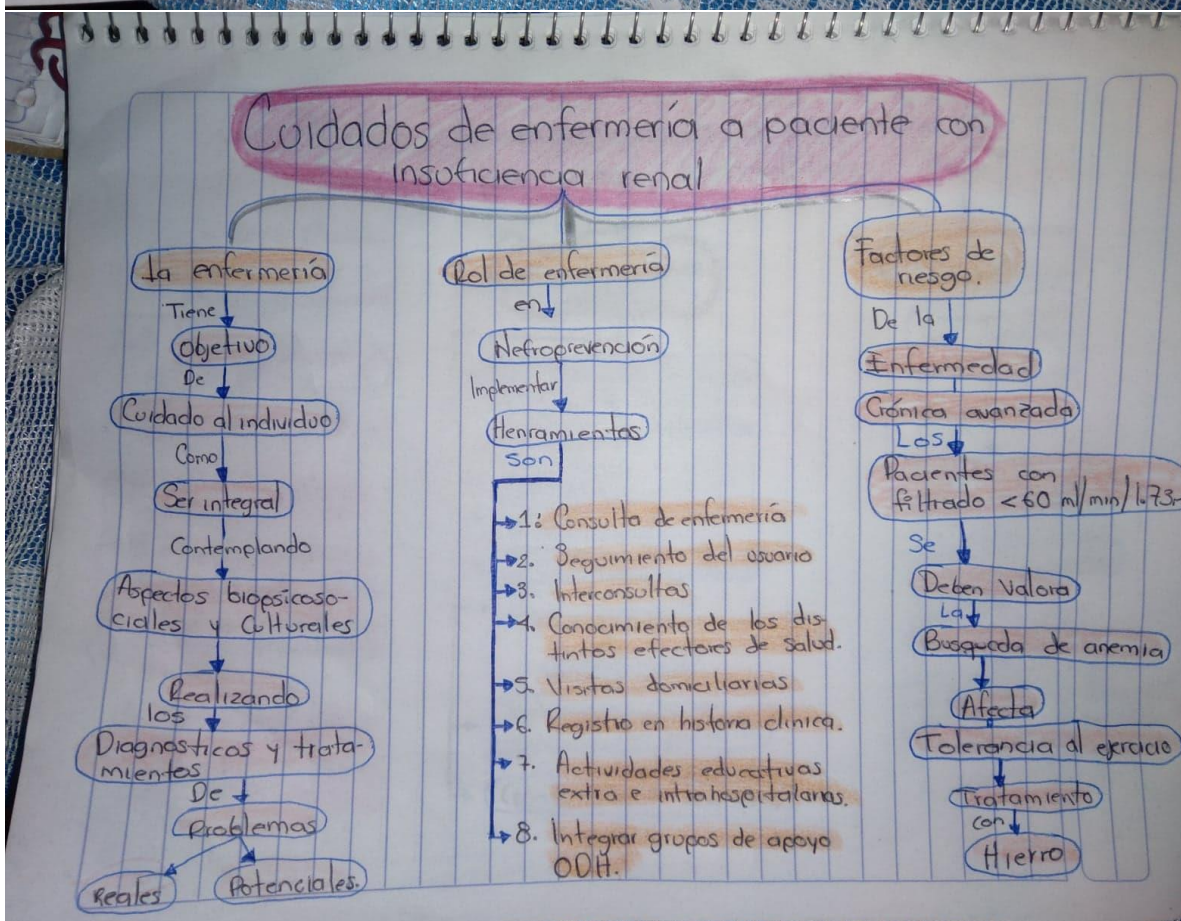 Cuidados de enfermería a paciente con
insuficiencia renal
La enfermería
Tiene
Objetivo
De
Cuidado al individuo
Como
Ser integral
Contemplando
Aspectos biopsicoso-
ciales y Culturales
Realizando
los
Diagnosticos y trata-
mientos
De
Problemas
Reales
Potenciales.
Rol de enfermería
en
Nefroprevención
Implementar
Herramientas
son
1. Consulta de enfermería
2. Seguimiento del usuario
3. Interconsultas
4. Conocimiento de los dis-
tintos efectores de salud.
5. Visitas domiciliarias
6. Registro en historia clínica.
7. Actividades educativas
extra e intrahospitalarias.
8. Integrar grupos de apoyo
ODH.
Factores de
riesgo.
De la
Enfermedad
Crónica avanzada
Los
Pacientes con
filtrado <60 ml/min/1.73
Se
Deben Valora
La
Busqueda de anemia
Afecta
Tolerancia al ejercicio
Tratamiento
con
Hierro